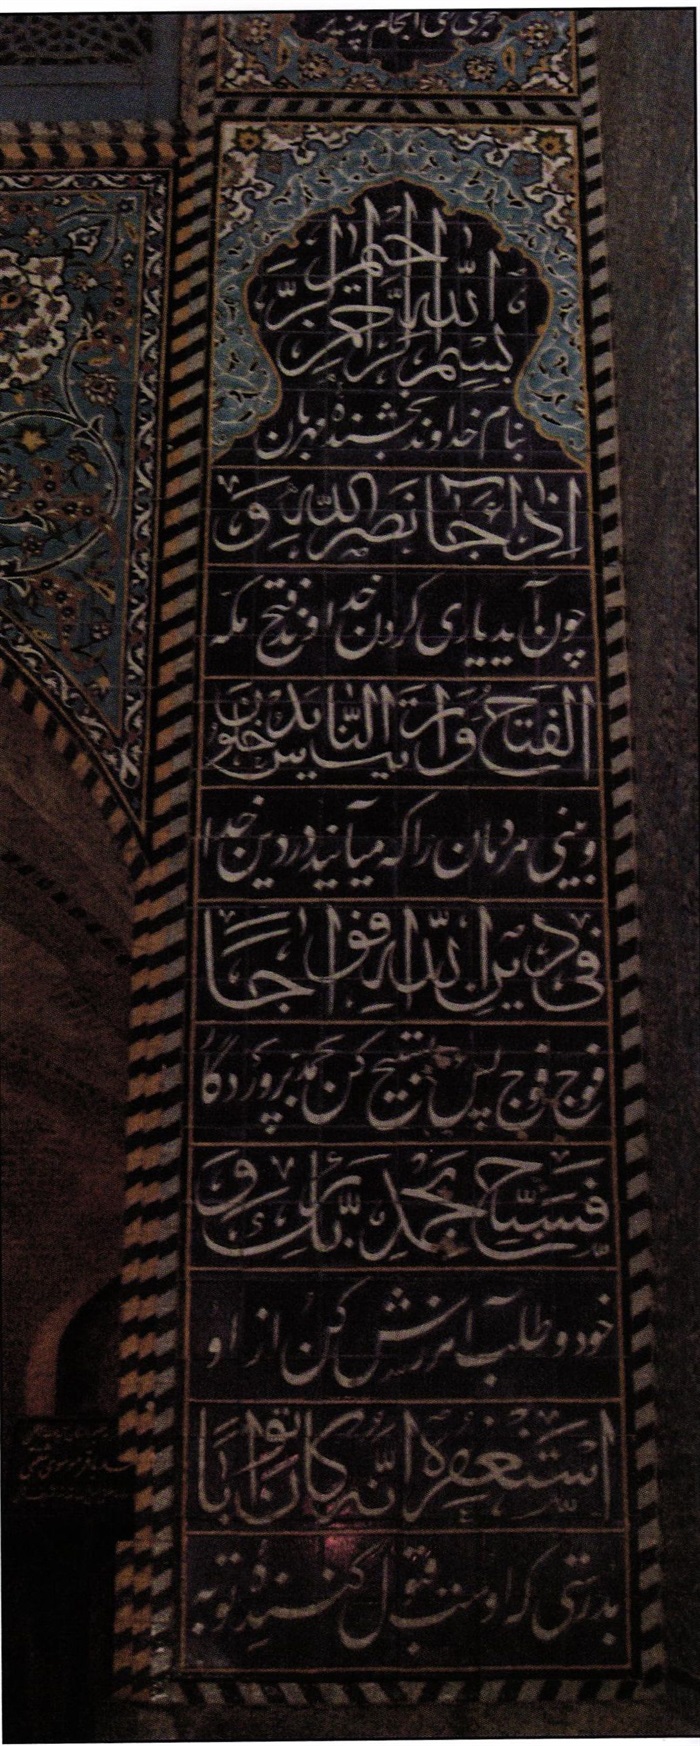 هجری ی انجام پذیر
بسم الله الرحمن الرحیم
بنام خداوند بخشنده مهربان
اِذا جاءَ نَصرُ اللهِ وَ
چون آید یاری کردن خدا و فتح مکه
الفَتحُ وَ رَاَیتَ النّاسَ یَدخُلونَ
و بینی مردمان را که میآیند در دین خدا
فی دینِ اللهِ اَفواجاً
فوج فوج پس تسبیح کن بحمد پروردگا
فَسَبِّح بِحَمدِ رَبِّکَ وَ
خود و طلب آمرزش کن از او
استَغفِرهُ اِنَّهُ کانَ تَوّاباً
بدرستی که اوست قبول کننده توبه